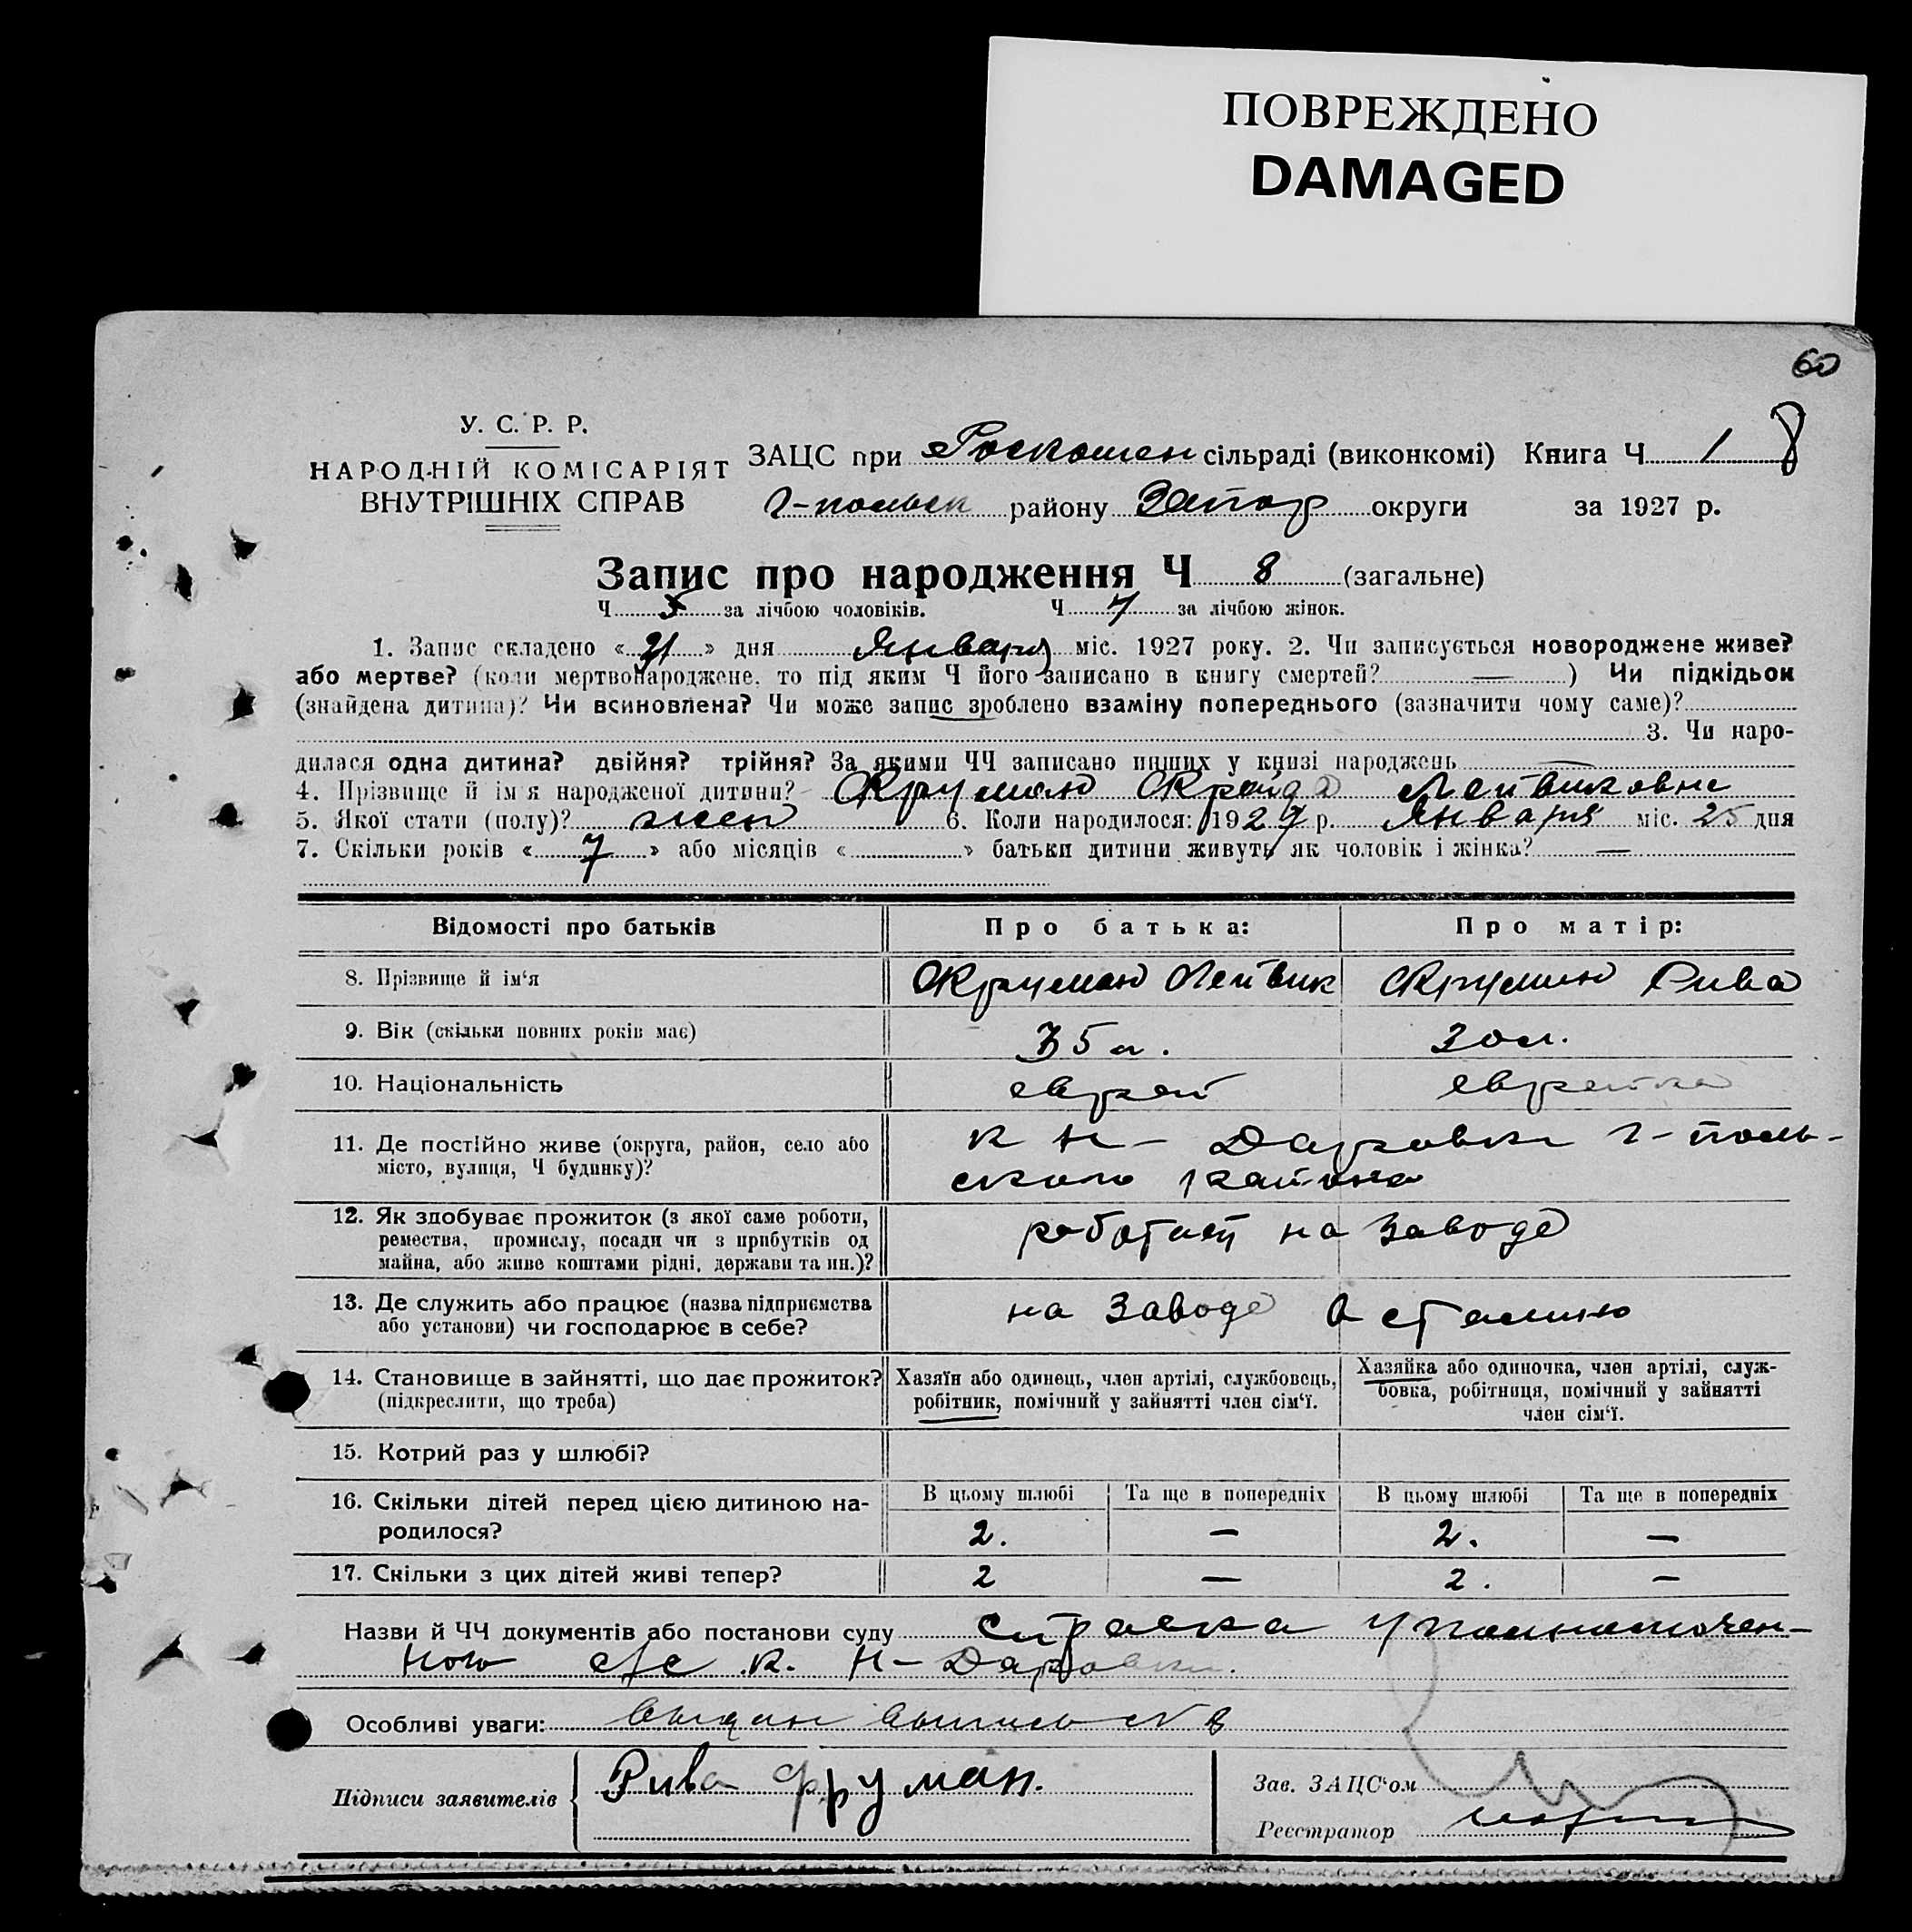 ПОВРЕЖДЕНО
DAMAGED
60
У. С. Р. Р.
НАРОДНІЙ КОМІСАРІЯТ
ВНУТРІШНІХ СПРАВ
ЗАЦС при Роскошен сільраді (виконкомі) Книга Ч 1 8
г-польск району Запор округи за 1927 р.
Запис про народження Ч 8 (загальне)
Ч 5 за лічбою чоловіків. Ч 7 за лічбою жінок.
1. Запис складено « 31 » дня Января міс. 1927 року. 2. Чи записується новороджене живе?
або мертве? (коли мертвонароджене, то під яким Ч його записано в книгу смертей? — ) Чи підкідьок
(знайдена дитина)? Чи всиновлена? Чи може запис зроблено взаміну попереднього (зазначити чому саме)?
3. Чи наро-
дилася одна дитина? двійня? трійня? За якими ЧЧ записано инших у книзі народжень —
4. Прізвище й ім'я народженої дитини? Фруман Фрейда Лейвиковна
5. Якої стати (полу)? жен 6. Коли народилося: 1927 р. Января міс. 25 дня
7. Скільки років « 7 » або місяців « » батьки дитини живуть як чоловік і жінка? —
Відомості про батьків Про батька: Про матір:
8. Прізвище й ім'я Фруман Лейвик Фруман Рива
9. Вік (скільки повних років має) 35 л. 30 л.
10. Національність еврей еврейка
11. Де постійно живе (округа, район, село або
місто, вулиця, Ч будинку)?
к Н- Даровка г-поль-
ского района
12. Як здобуває прожиток (з якої саме роботи,
ремества, промислу, посади чи з прибутків од
майна, або живе коштами рідні, держави та ин.)?
работает на заводе
13. Де служить або працює (назва підприємства
або установи) чи господарює в себе?
на заводе в Сталино
14. Становище в зайнятті, що дає прожиток?
(підкреслити, що треба)
Хазяїн або одинець, член артілі, службовець,
робітник, помічний у зайнятті член сім'ї.
Хазяйка або одиночка, член артілі, служ-
бовка, робітниця, помічний у зайнятті
член сім'ї.
15. Котрий раз у шлюбі?
16. Скільки дітей перед цією дитиною на-
родилося?
В цьому шлюбі Та ще в попередніх В цьому шлюбі Та ще в попередніх
2. — 2. —
17. Скільки з цих дітей живі тепер? 2 — 2. —
Назви й ЧЧ документів або постанови суду справка уполномочен-
ного с/с к. Н- Даровки.
Особливі уваги: выдан выпись № 8
Підписи заявителів Рива Фруман.
Зав. ЗАЦС'ом
Реєстратор